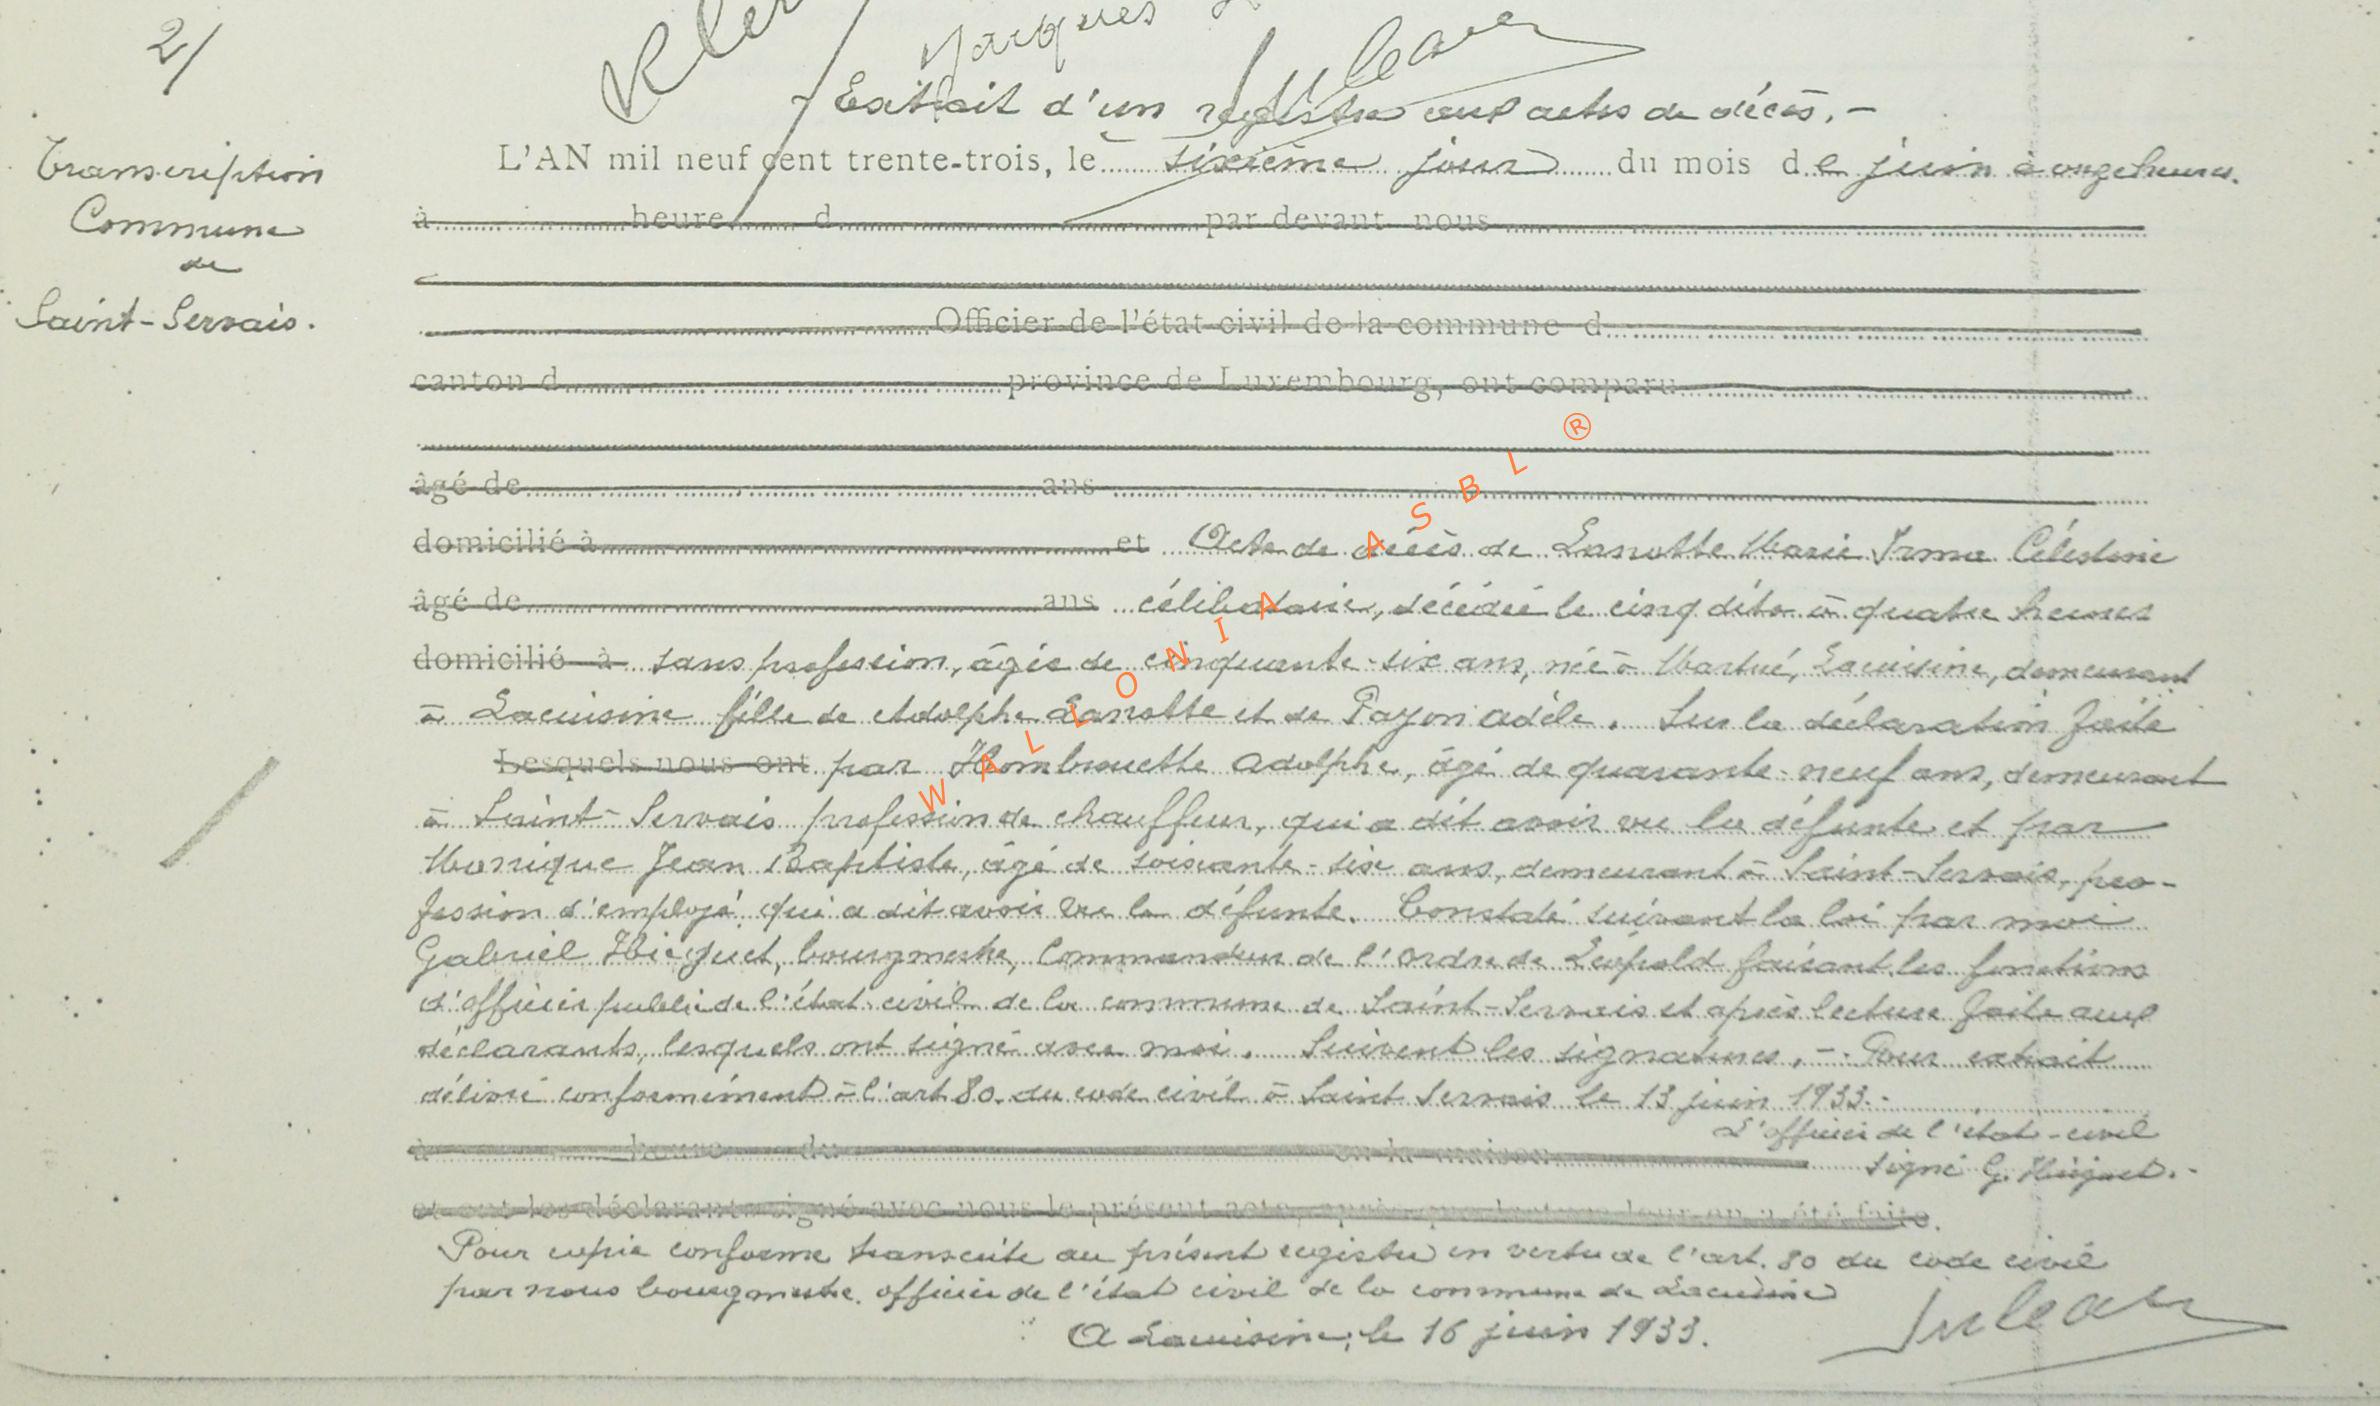 2/
Jacques
Extrait d'un registre aux actes de décès. -
Transcription
Commune
de
Saint-Servais.
L'AN mil neuf cent trente-trois, le sixième jour du mois de juin à onze heures.
à heure d par devant nous
Officier de l'état civil de la commune d
canton d province de Luxembourg, ont comparu
âgé de ans
domicilié à et Acte de décès de Lanotte Marie Irma Célestine
âgé de ans célibataire, décédée le cinq dito à quatre heures
domicilié à sans profession, âgée de cinquante-six ans, née à Martué, Lacuisine, demeurant
à Lacuisine fille de Adolphe Lanotte et de Payon Adèle. Sur la déclaration faite
Lesquels nous ont par Hombrouette Adolphe, âgé de quarante-neuf ans, demeurant
à Saint-Servais profession de chauffeur, qui a dit avoir vu la défunte et par
Monique Jean Baptiste, âgé de soixante-six ans, demeurant à Saint-Servais, pro-
fession d'employé, qui a dit avoir vu la défunte. Constaté suivant la loi par moi
Gabriel Hicguet, bourgmestre, Commandeur de l'Ordre de Léopold faisant les fonctions
d'officier public de l'état civil de la commune de Saint-Servais et après lecture faite aux
déclarants, lesquels ont signé avec moi. Suivent les signatures. - Pour extrait
délivré conformément à l'art 80 du code civil à Saint Servais le 13 juin 1933.-
L'officier de l'état-civil
à heure du en la maison signé G. Hicguet.-
et ont les déclarants signé avec nous le présent acte, après que lecture leur en a été faite.
Pour copie conforme transcrite au présent registre en vertu de l'art. 80 du code civil
par nous bourgmestre officier de l'état civil de la commune de Lacuisine
A Lacuisine, le 16 juin 1933.
WALLONIA ASBL ®